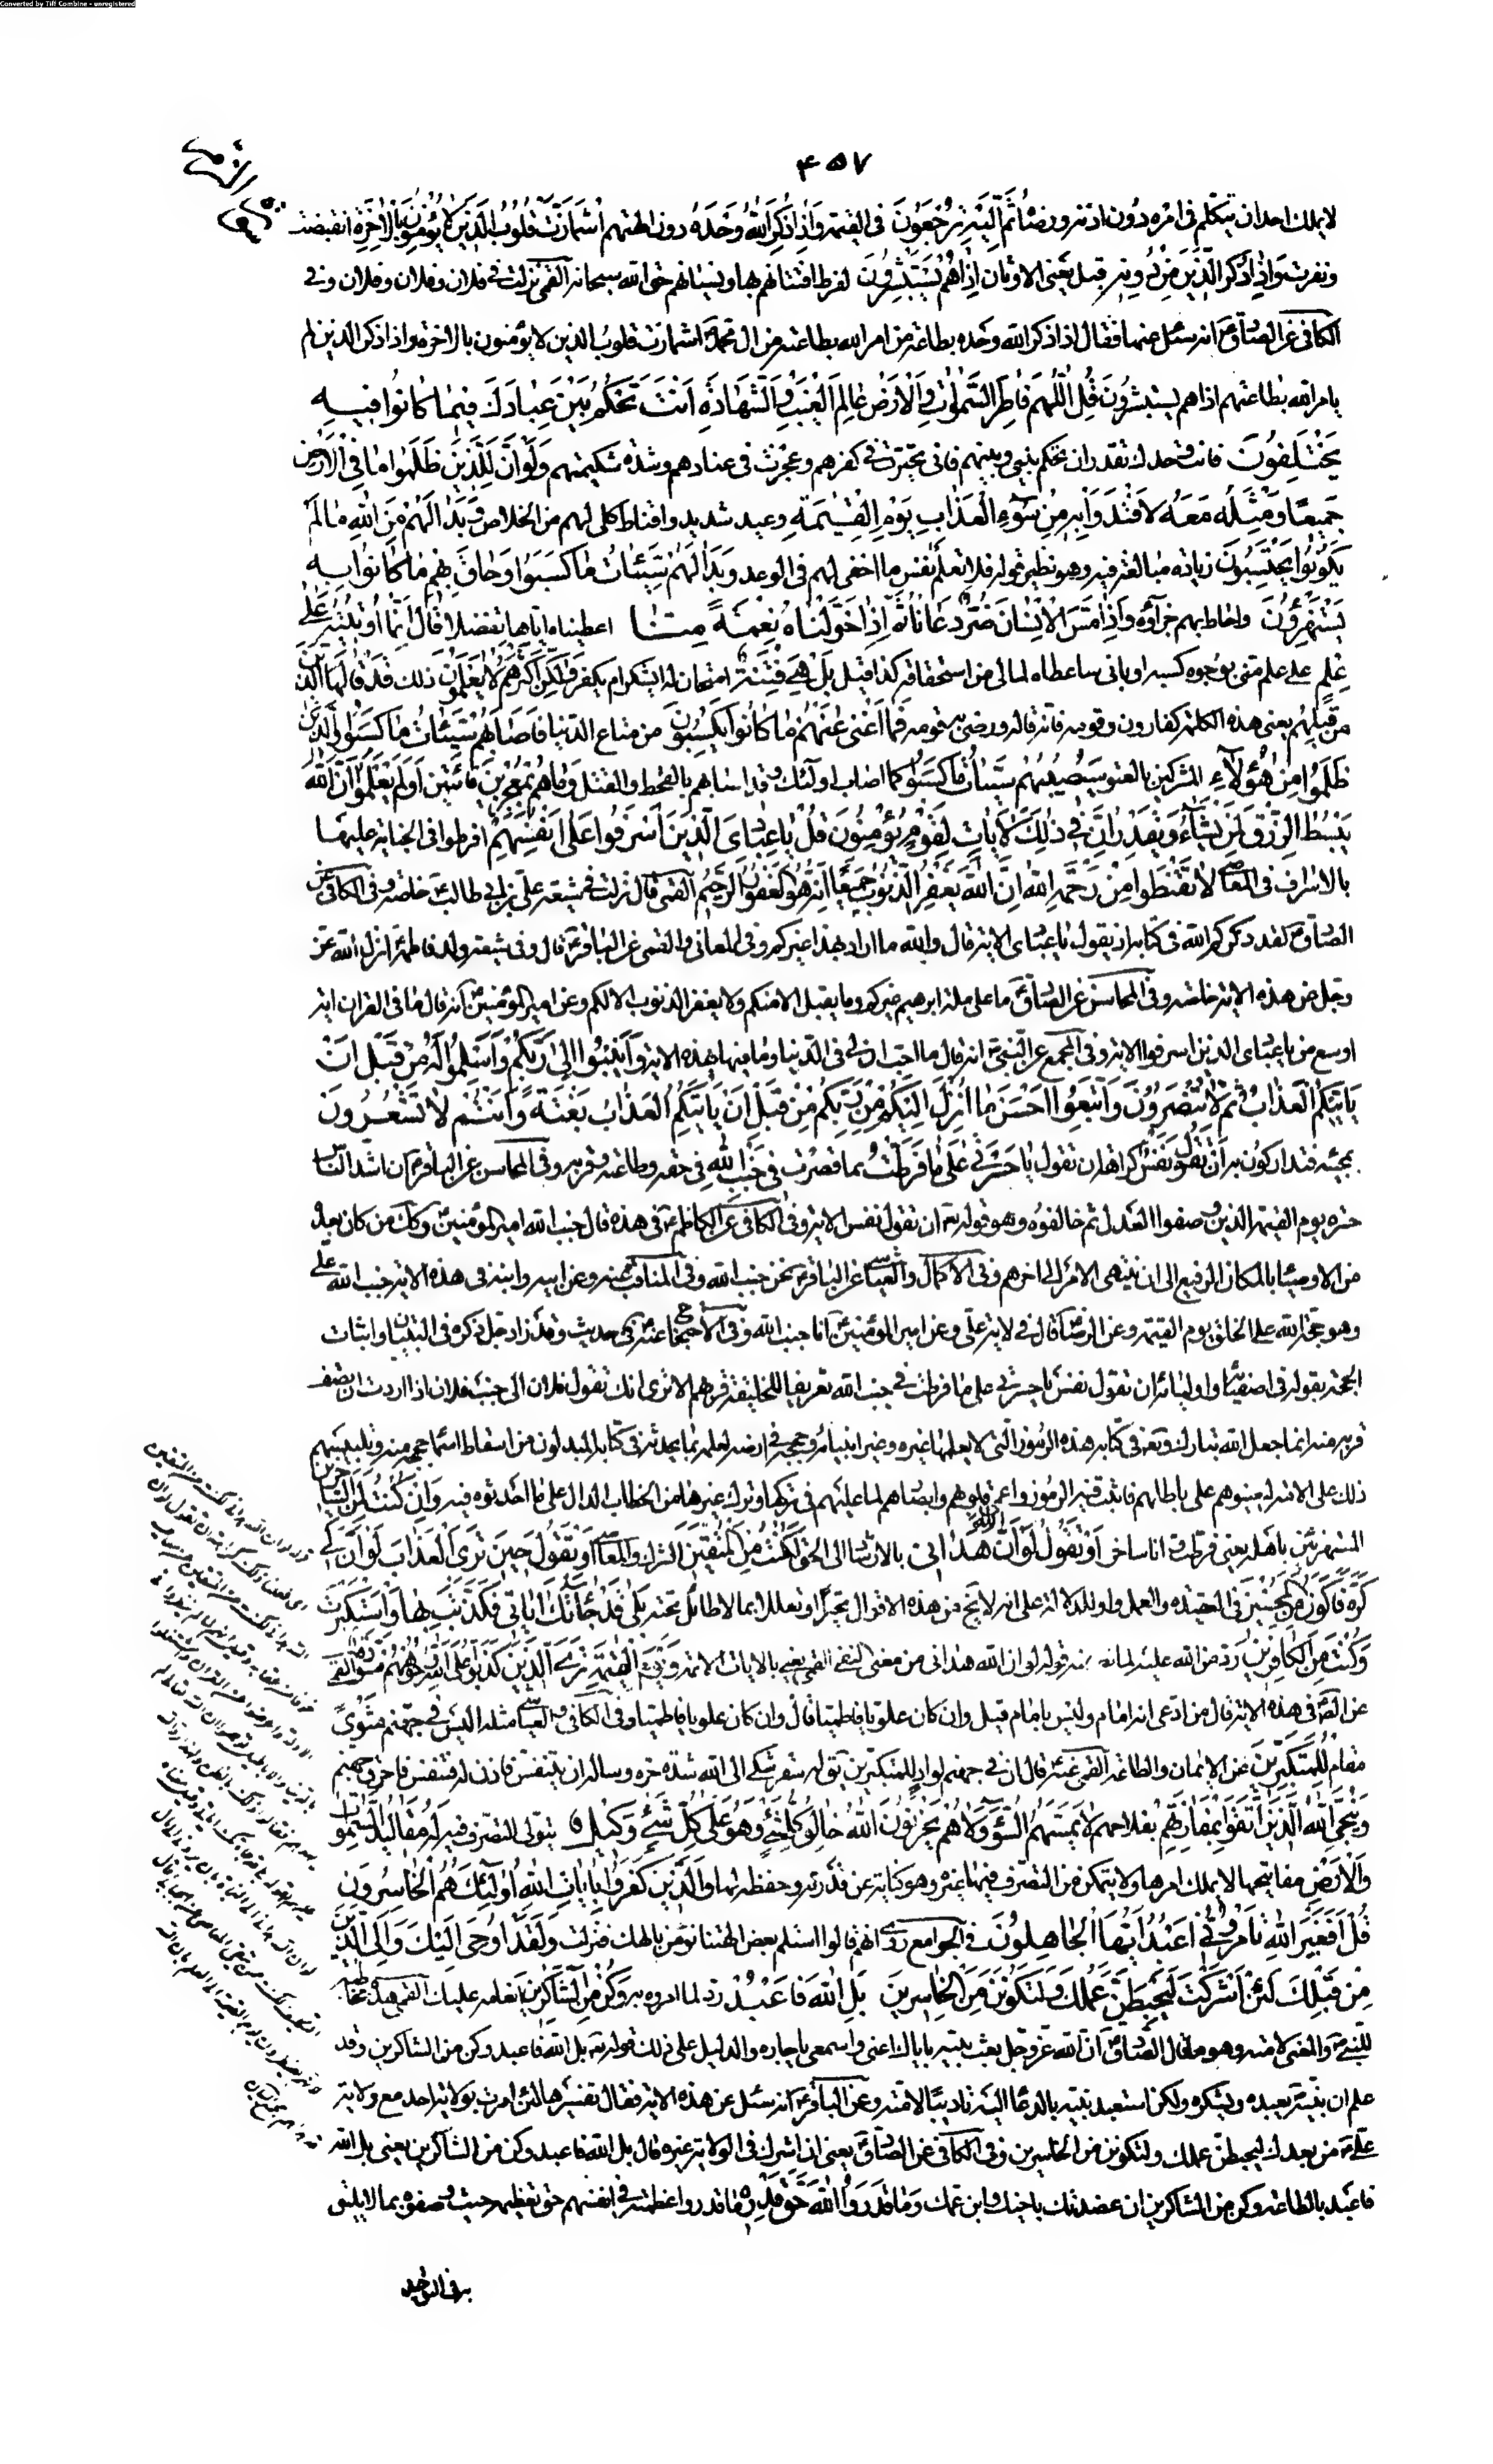 Converted by Tiff Combine - unregistered
۴۵۷
لا يملك احد ان يتكلم فى امره دون اذنه و رضاه ثُمَّ اِلَيْهِ تُرْجَعُونَ فى القيمة وَاِذَا ذُكِرَ اللّٰهُ وَحْدَهُ دون الهتهم اشْمَأَزَّتْ قُلُوبُ الَّذينَ لا يُؤْمِنُونَ بِالْاٰخِرَةِ انقبضت
و نفرت وَاِذَا ذُكِرَ الَّذينَ مِنْ دُونِهِ قيل يعنى الاوثان اِذَا هُمْ يَسْتَبْشِرُونَ لفرط افتتانهم بها و نسيانهم حق الله سبحانه القمى نزلت فى فلان و فلان و فلان و فى
الكافى عن الصادق ع انه سئل عنها فقال اذا ذكر الله وحده بطاعة من امر الله بطاعته من ال محمد اشمأزت قلوب الذين لا يؤمنون بالاخرة و اذا ذكر الذين لم
يامر الله بطاعتهم اذا هم يستبشرون قُلِ اللّٰهُمَّ فَاطِرَ السَّمٰوَاتِ وَالْاَرْضِ عَالِمَ الْغَيْبِ وَالشَّهَادَةِ اَنْتَ تَحْكُمُ بَيْنَ عِبَادِكَ فيمَا كَانُوا فيهِ
يَخْتَلِفُونَ فانت وحدك تقدر ان تحكم بينى و بينهم فانى تحيرت فى كفرهم و عجزت فى عنادهم و شدة شكيمتهم وَلَوْ اَنَّ لِلَّذينَ ظَلَمُوا مَا فِى الْاَرْضِ
جَميعًا وَمِثْلَهُ مَعَهُ لَافْتَدَوْا بِهِ مِنْ سُوءِ الْعَذَابِ يَوْمَ الْقِيٰمَةِ وعيد شديد و اقناط كلى لهم من الخلاص وَبَدَا لَهُمْ مِنَ اللّٰهِ مَا لَمْ
يَكُونُوا يَحْتَسِبُونَ زيادة مبالغة فيه و هو نظير قوله فلا تعلم نفس ما اخفى لهم فى الوعد وَبَدَا لَهُمْ سَيِّئَاتُ مَا كَسَبُوا وَحَاقَ بِهِمْ مَا كَانُوا بِهِ
يَسْتَهْزِؤُنَ و احاط بهم جزاؤه وَاِذَا مَسَّ الْاِنْسَانَ ضُرٌّ دَعَانَا ثُمَّ اِذَا خَوَّلْنَاهُ نِعْمَةً مِنَّا اعطيناه اياها تفضلا قَالَ اِنَّمَا اُوتيتُهُ عَلٰى
عِلْمٍ على علم منى بوجوه كسبه او بانى ساعطاه لمالى من استحقاقه كذا قيل بَلْ هِىَ فِتْنَةٌ امتحان له ايشكر ام يكفر وَلٰكِنَّ اَكْثَرَهُمْ لا يَعْلَمُونَ ذلك قَدْ قَالَهَا الَّذينَ
مِنْ قَبْلِهِمْ يعنى هذه الكلمة كقارون و قومه فانه قاله و رضى به قومه فَمَا اَغْنٰى عَنْهُمْ مَا كَانُوا يَكْسِبُونَ من متاع الدنيا فَاَصَابَهُمْ سَيِّئَاتُ مَا كَسَبُوا وَالَّذينَ
ظَلَمُوا مِنْ هٰؤُلاءِ المشركين بالعتو سَيُصيبُهُمْ سَيِّئَاتُ مَا كَسَبُوا كما اصاب اولئك و قد اصابهم بالقحط و القتل وَمَا هُمْ بِمُعْجِزينَ فائتين اَوَلَمْ يَعْلَمُوا اَنَّ اللّٰهَ
يَبْسُطُ الرِّزْقَ لِمَنْ يَشَاءُ وَيَقْدِرُ اِنَّ فى ذٰلِكَ لَاٰيَاتٍ لِقَوْمٍ يُؤْمِنُونَ قُلْ يَا عِبَادِىَ الَّذينَ اَسْرَفُوا عَلٰى اَنْفُسِهِمْ افرطوا فى الجناية عليها
بالاسراف فى المعاصى لا تَقْنَطُوا مِنْ رَحْمَةِ اللّٰهِ اِنَّ اللّٰهَ يَغْفِرُ الذُّنُوبَ جَميعًا اِنَّهُ هُوَ الْغَفُورُ الرَّحيمُ القمى قال نزلت فى شيعة على بن ابى طالب ع خاصة و فى الكافى عن
الصادق ع لقد ذكركم الله فى كتابه اذ يقول يا عبادى الاية قال و الله ما اراد بهذا غيركم و فى المعانى و القمى عن الباقر ع قال و فى شيعة ولد فاطمة انزل الله عز
و جل هذه الاية خاصة و فى المحاسن عن الصادق ع ما على ملة ابرهيم غيركم و ما يقبل الا منكم و لا يغفر الذنوب الا لكم و عن امير المؤمنين ع انه قال ما فى القران اية
اوسع من يا عبادى الذين اسرفوا الاية و فى المجمع عن النبى ص انه قال ما احب ان لى فى الدنيا و ما فيها بهذه الاية وَاَنيبُوا اِلٰى رَبِّكُمْ وَاَسْلِمُوا لَهُ مِنْ قَبْلِ اَنْ
يَاْتِيَكُمُ الْعَذَابُ ثُمَّ لا تُنْصَرُونَ وَاتَّبِعُوا اَحْسَنَ مَا اُنْزِلَ اِلَيْكُمْ مِنْ رَبِّكُمْ مِنْ قَبْلِ اَنْ يَاْتِيَكُمُ الْعَذَابُ بَغْتَةً وَاَنْتُمْ لا تَشْعُرُونَ
بمجيئه فتداركون به اَنْ تَقُولَ نَفْسٌ كراهة ان تقول يَا حَسْرَتٰى عَلٰى مَا فَرَّطْتُ بما قصرت فى جَنْبِ اللّٰهِ فى حقه و طاعته و قربه و فى المحاسن عن الباقر ع ان اشد الناس
حسرة يوم القيمة الذين وصفوا العدل ثم خالفوه و هو قوله تع ان تقول نفس الاية و فى الكافى عن الكاظم ع فى هذه قال جنب الله امير المؤمنين ع و كك من كان بعده
من الاوصياء بالمكان الرفيع الى ان ينتهى الامر الى اخرهم و فى الاكمال و العياشى عن الباقر ع نحن جنب الله و فى المناقب عنه و عن ابيه و ابنه فى هذه الاية جنب الله على
و هو حجة الله على الخلق يوم القيمة و عن الرضا ع قال فى ولاية على و عن امير المؤمنين ع انا جنب الله و فى الاحتجاج عنه ع فى حديث و قد زاد جل ذكره فى التبيان و اثبات
الحجة بقوله فى اصفيائه و اوليائه ان تقول نفس يا حسرتى على ما فرطت فى جنب الله تعريفا للخليقة قربهم الا ترى انك تقول فلان الى جنب فلان اذا اردت ان تصف
قربه منه انما جعل الله تبارك و تع فى كتابه هذه الرموز التى لا يعلمها غيره و غير انبيائه و حججه فى ارضه لعلمه بما يحدثه فى كتابه المبدلون من اسقاط اسماء حججه منه و تلبيسهم
ذلك على الامة ليعينوهم على باطلهم فاثبت فيه الرموز و اعمى قلوبهم و ابصارهم لما عليهم فى تركها و ترك غيرها من الخطاب الدال على ما احدثوه فيه وَاِنْ كُنْتُ لَمِنَ السَّاخِرينَ
المستهزئين باهله يعنى فرطت و انا ساخر اَوْ تَقُولَ لَوْ اَنَّ اللّٰهَ هَدَانى بالارشاد الى الحق لَكُنْتُ مِنَ الْمُتَّقينَ الشرك و المعاصى اَوْ تَقُولَ حينَ تَرَى الْعَذَابَ لَوْ اَنَّ لى
كَرَّةً فَاَكُونَ مِنَ الْمُحْسِنينَ فى العقيدة و العمل و او للدلالة على انه لا يخ من هذه الاقوال تحيرا و تعللا بما لا طائل تحته بَلٰى قَدْ جَاءَتْكَ اٰيَاتى فَكَذَّبْتَ بِهَا وَاسْتَكْبَرْتَ
وَكُنْتَ مِنَ الْكَافِرينَ رد من الله عليه لما تضمنه قوله لو ان الله هدانى من معنى النفى القمى يعنى بالايات الائمة وَيَوْمَ الْقِيٰمَةِ تَرَى الَّذينَ كَذَبُوا عَلَى اللّٰهِ وُجُوهُهُمْ مُسْوَدَّةٌ القمى
عن الصادق ع فى هذه الاية قال من ادعى انه امام و ليس بامام قيل و ان كان علويا فاطميا قال و ان كان علويا فاطميا و فى الكافى و العياشى مثله اَلَيْسَ فى جَهَنَّمَ مَثْوًى
مقام لِلْمُتَكَبِّرينَ عن الايمان و الطاعة القمى عنه ع قال ان فى جهنم لواد للمتكبرين يق له سقر شكى الى الله شدة حره و سأله ان يتنفس فاذن له فتنفس فاحرق جهنم
وَيُنَجِّى اللّٰهُ الَّذينَ اتَّقَوْا بِمَفَازَتِهِمْ بفلاحهم لا يَمَسُّهُمُ السُّوءُ وَلا هُمْ يَحْزَنُونَ اللّٰهُ خَالِقُ كُلِّ شَىْءٍ وَهُوَ عَلٰى كُلِّ شَىْءٍ وَكيلٌ يتولى التصرف فيه لَهُ مَقَاليدُ السَّمٰوَاتِ
وَالْاَرْضِ مفاتيحها لا يملك امرها و لا يتمكن من التصرف فيها غيره و هو كناية عن قدرته و حفظه لها وَالَّذينَ كَفَرُوا بِاٰيَاتِ اللّٰهِ اُولٰئِكَ هُمُ الْخَاسِرُونَ
قُلْ اَفَغَيْرَ اللّٰهِ تَاْمُرُونّى اَعْبُدُ اَيُّهَا الْجَاهِلُونَ فى الجوامع روى انهم قالوا استلم بعض الهتنا نؤمن بالهك فنزلت وَلَقَدْ اُوحِىَ اِلَيْكَ وَاِلَى الَّذينَ
مِنْ قَبْلِكَ لَئِنْ اَشْرَكْتَ لَيَحْبَطَنَّ عَمَلُكَ وَلَتَكُونَنَّ مِنَ الْخَاسِرينَ بَلِ اللّٰهَ فَاعْبُدْ رد لما امروه به وَكُنْ مِنَ الشَّاكِرينَ انعامه عليك القمى هذه مخاطبة
للنبى ص و المعنى لامته و هو ما قال الصادق ع ان الله عز و جل بعث نبيه باياك اعنى و اسمعى يا جاره و الدليل على ذلك قوله تع بل الله فاعبد و كن من الشاكرين و قد
علم ان نبيه ص يعبده و يشكره و لكن استعبد نبيه بالدعاء اليه تاديبا لامته و عن الباقر ع انه سئل عن هذه الاية فقال تفسيرها لئن امرت بولاية احد مع ولاية
على ع من بعدك ليحبطن عملك و لتكونن من الخاسرين و فى الكافى عن الصادق ع يعنى ان اشرك فى الولاية غيره قال بل الله فاعبد و كن من الشاكرين يعنى بل الله
فاعبد بالطاعة و كن من الشاكرين ان عضدتك باخيك و ابن عمك وَمَا قَدَرُوا اللّٰهَ حَقَّ قَدْرِهِ ما قدروا عظمته فى انفسهم حق تعظيمه حيث وصفوه بما لا يليق
به فى التوحيد